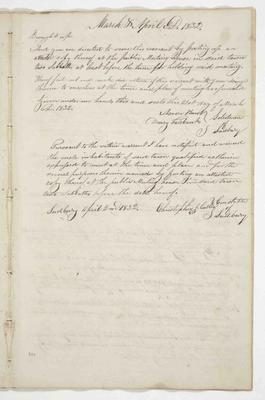 March & April A.D. 1832.
Brought up
That you are directed to serve this warrant by posting up an
attested copy thereof at the public Meeting House in said town
two Sabbaths at least before the time for holding said meeting
Hereof fail not and make due return of this warrant with your doings
thereon to ourselves at the time and place of meeting aforesaid
Given under our hands this and seals this 21st day of March
A.D. 1832.
Selectmen
of
Sudbury
Pursuant to the within warrant I have notified and warned
the male inhabitants of said town qualified as therein
expressed to meet at the time and place and for the
purposes therein named by posting an attested
copy thereof at the public Meeting house in said town
two Sabbaths before the date hereof.
Sudbury April 2nd 1832. Christopher G. Cutler Constable
Sudbury